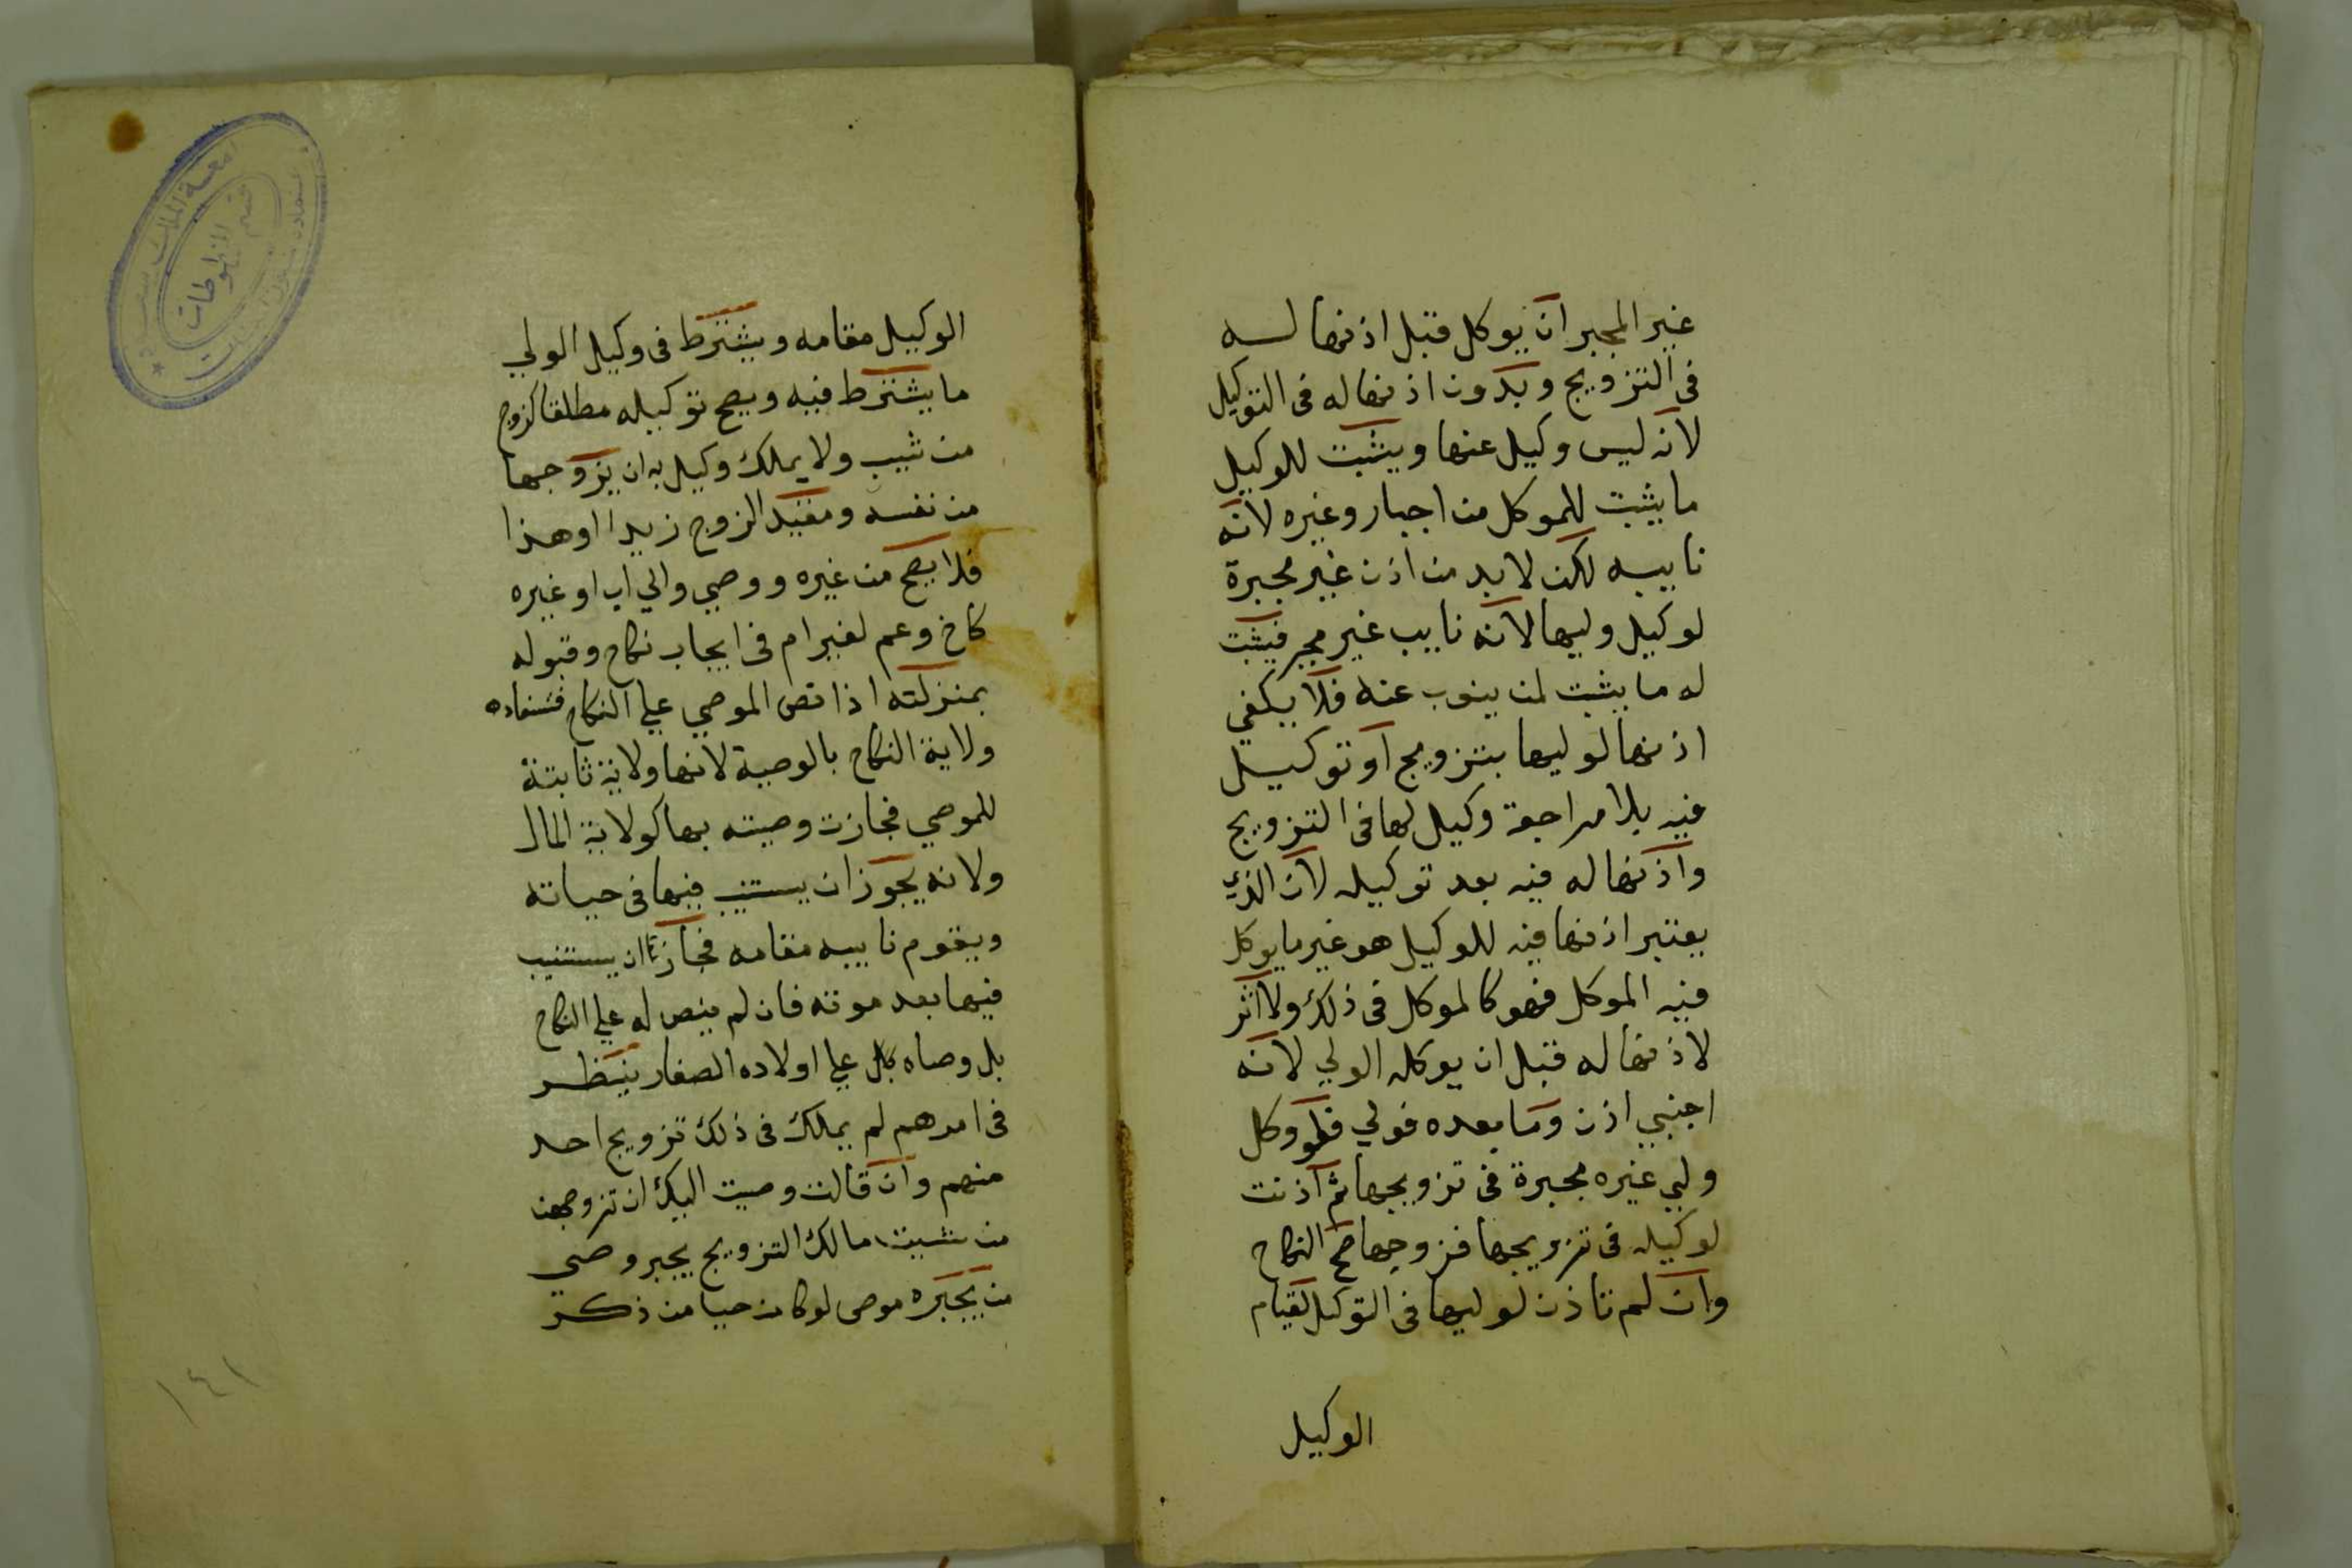 غير المجبر ان يوكل قبل اذنها له
في التزويج وبدون اذنها له في التوكيل
لانه ليس وكيل عنها ويثبت للوكيل
ما يثبت للموكل من اجبار وغيره لانه
نايبه لكن لا بد من اذن غير مجبرة
لوكيل وليها لانه نايب غير مجبر فيثبت
له ما يثبت لمن ينوب عنه فلا يكفي
اذنها لوليها بتزويج او توكيل
فيه بلا مراجعة وكيل لها في التزويج
واذنها له فيه بعد توكيله لان الذي
يعتبر اذنها فيه للوكيل هو غير ما يوكل
فيه الموكل فهو كالموكل في ذلك ولا اثر
لاذنها له قبل ان يوكله الولي لانه
اجنبي اذن وما بعده فولي فلو وكل
ولي غيره مجبرة في تزويجها ثم اذنت
لوكيله في تزويجها فزوجها صح النكاح
وان لم تاذن لوليها في التوكيل لقيام
الوكيل
الوكيل مقامه ويشترط في وكيل الولي
ما يشترط فيه ويصح توكيله مطلقا كزوج
من شيت ولا يملك وكيل به ان يزوجها
من نفسه ومقيد الزوج زيدا او هذا
فلا يصح من غيره ووصي والي اب او غيره
كاخ وعم لغير ام في ايجاب نكاح وقبوله
بمنزلته اذا نص الموصي علي النكاح فتستفاد
ولاية النكاح بالوصية لانها ولاية ثابتة
للموصي فجازت وصيته بها كولاية المال
ولانه يجوز ان يستنيب فيها في حياته
ويقوم نايبه مقامه فجاز ان يستنيب
فيها بعد موته فان لم ينص له علي النكاح
بل وصاه علي اولاده الصغار ينظر
في امرهم لم يملك في ذلك تزويج احد
منهم وان قالت وصيت اليك ان تزوجهن
من شيت مالك التزويج يجبر وصي
من يجبره موصي لو كان حيا من ذكر
١٤١
قسم المخطوطات